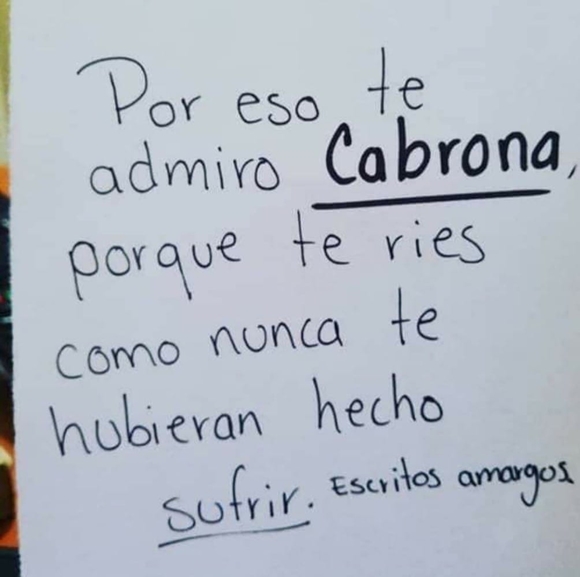 Por eso te
admiro Cabrona,
porque te ries
como nunca te
hubieran hecho
sufrir. Escritos amargos